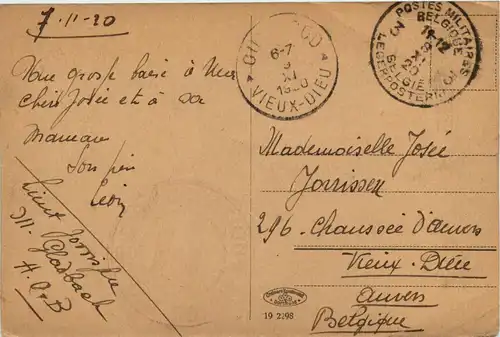 7-11-20
Une grosse baise à ma
chère Josée et à sa
maman
Son père
Léon
Lieut Jorrissen
M. Gladbach
A O B
VIEUX-DIEU
6-7
9
XI
1920
POSTES MILITAIRES
BELGIQUE
BELGIE
LEGERPOSTERIJ
3
3
Mademoiselle Josée
Jorrissen
296 - Chaussée d'anvers
Vieux-Dieu
anvers
Belgique
19 2298